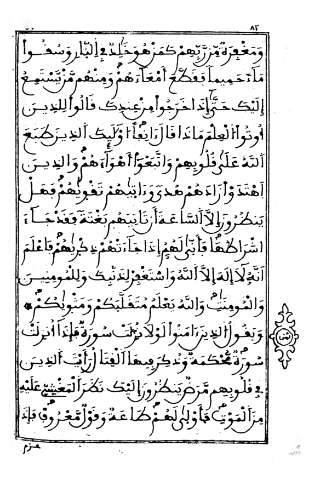 ٨٢
وَمَغْفِرَةٌ مِّن رَّبِّهِمْ كَمَنْ هُوَ خَٰلِدٌ فِي النَّارِ وَسُقُوا
مَآءً حَمِيمًا فَقَطَّعَ أَمْعَآءَهُمْ وَمِنْهُم مَّنْ يَسْتَمِعُ
إِلَيْكَ حَتَّىٰ إِذَا خَرَجُوا مِنْ عِندِكَ قَالُوا لِلَّذِينَ
أُوتُوا الْعِلْمَ مَاذَا قَالَ ءَانِفًا أُوْلَٰٓئِكَ الَّذِينَ طَبَعَ
اللَّهُ عَلَىٰ قُلُوبِهِمْ وَاتَّبَعُوا أَهْوَآءَهُمْ وَالَّذِينَ
اهْتَدَوْا زَادَهُمْ هُدًى وَءَاتَىٰهُمْ تَقْوَىٰهُمْ فَهَلْ
يَنظُرُونَ إِلَّا السَّاعَةَ أَن تَأْتِيَهُم بَغْتَةً فَقَدْ جَآءَ
اشْرَاطُهَا فَأَنَّىٰ لَهُمْ إِذَا جَآءَتْهُمْ ذِكْرَىٰهُمْ فَاعْلَمْ
أَنَّهُ لَآ إِلَٰهَ إِلَّا اللَّهُ وَاسْتَغْفِرْ لِذَنۢبِكَ وَلِلْمُومِنِينَ
وَالْمُومِنَٰتِ وَاللَّهُ يَعْلَمُ مُتَقَلَّبَكُمْ وَمَثْوَىٰكُمْ
وَيَقُولُ الَّذِينَ ءَامَنُوا لَوْلَا نُزِّلَتْ سُورَةٌ فَإِذَآ أُنزِلَتْ
سُورَةٌ مُّحْكَمَةٌ وَذُكِرَ فِيهَا الْقِتَالُ رَأَيْتَ الَّذِينَ
فِي قُلُوبِهِم مَّرَضٌ يَنظُرُونَ إِلَيْكَ نَظَرَ الْمَغْشِيِّ عَلَيْهِ
مِنَ الْمَوْتِ فَأَوْلَىٰ لَهُمْ طَاعَةٌ وَقَوْلٌ مَّعْرُوفٌ فَإِذَا
عزم